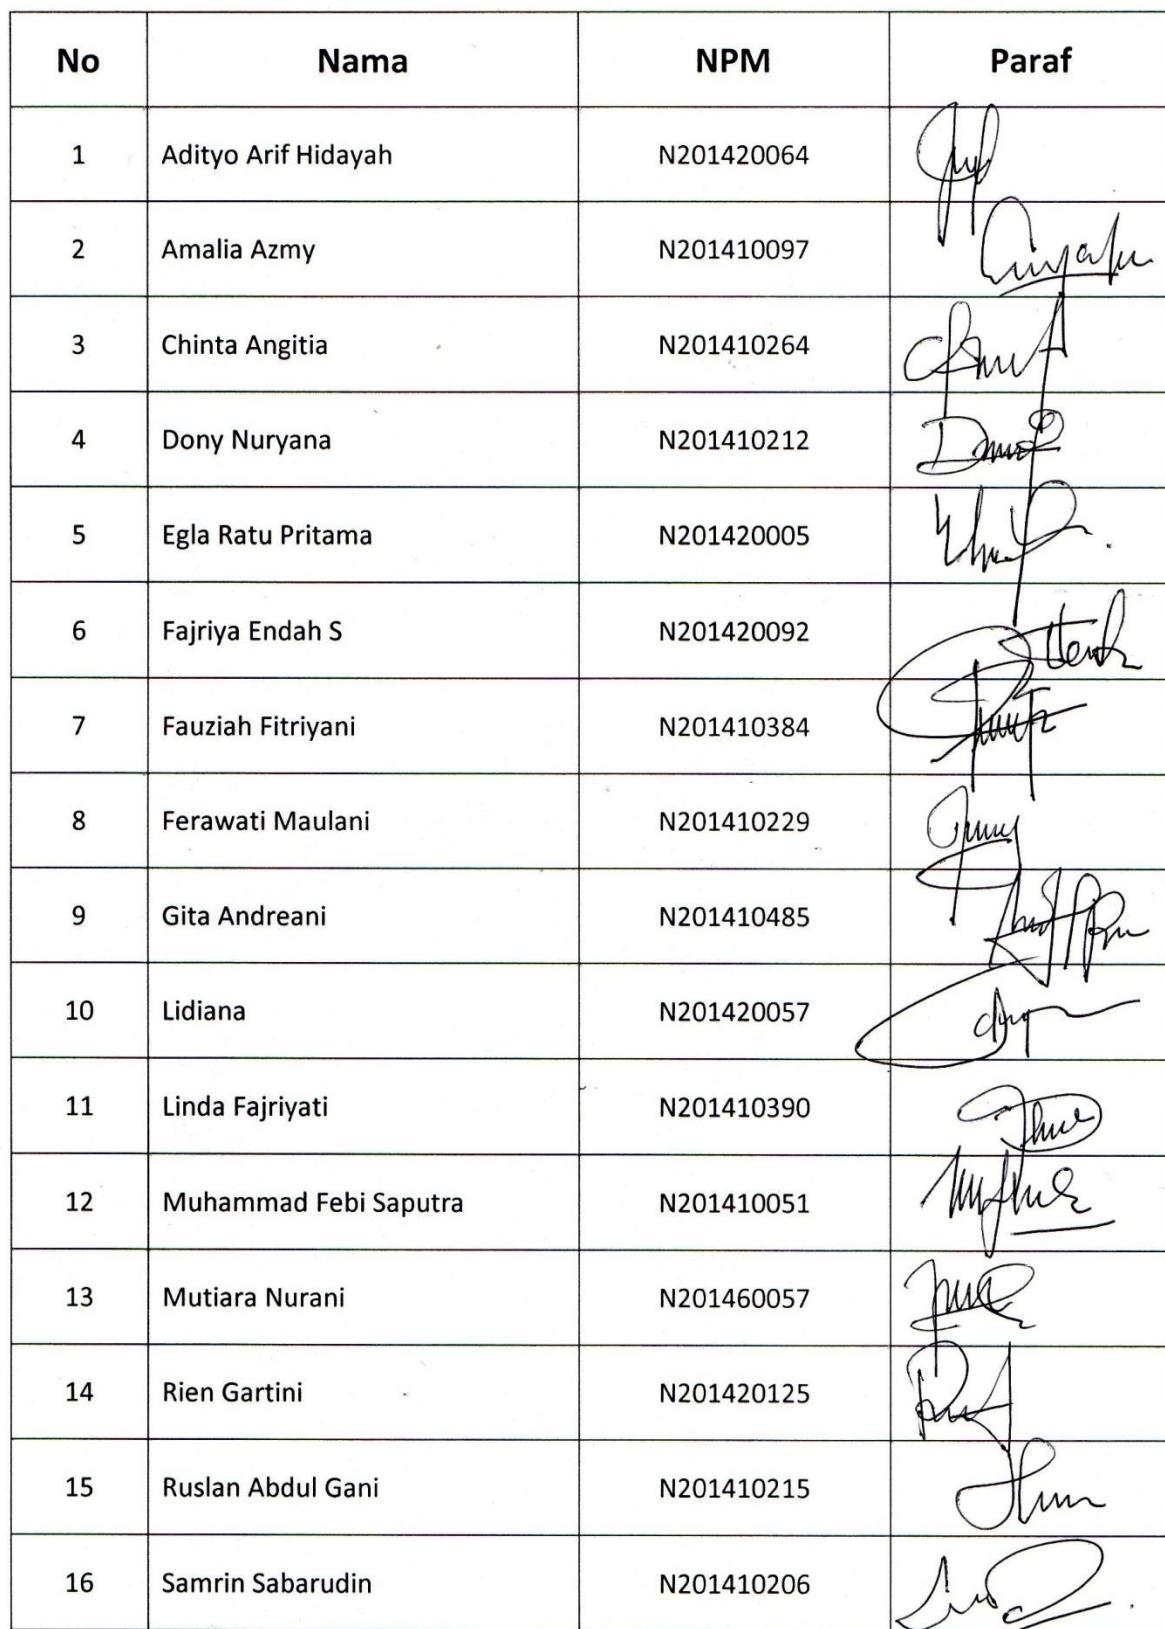 No Nama NPM Paraf
1 Adityo Arif Hidayah N201420064
2 Amalia Azmy N201410097
3 Chinta Angitia N201410264
4 Dony Nuryana N201410212
5 Egla Ratu Pritama N201420005
6 Fajriya Endah S N201420092
7 Fauziah Fitriyani N201410384
8 Ferawati Maulani N201410229
9 Gita Andreani N201410485
10 Lidiana N201420057
11 Linda Fajriyati N201410390
12 Muhammad Febi Saputra N201410051
13 Mutiara Nurani N201460057
14 Rien Gartini N201420125
15 Ruslan Abdul Gani N201410215
16 Samrin Sabarudin N201410206